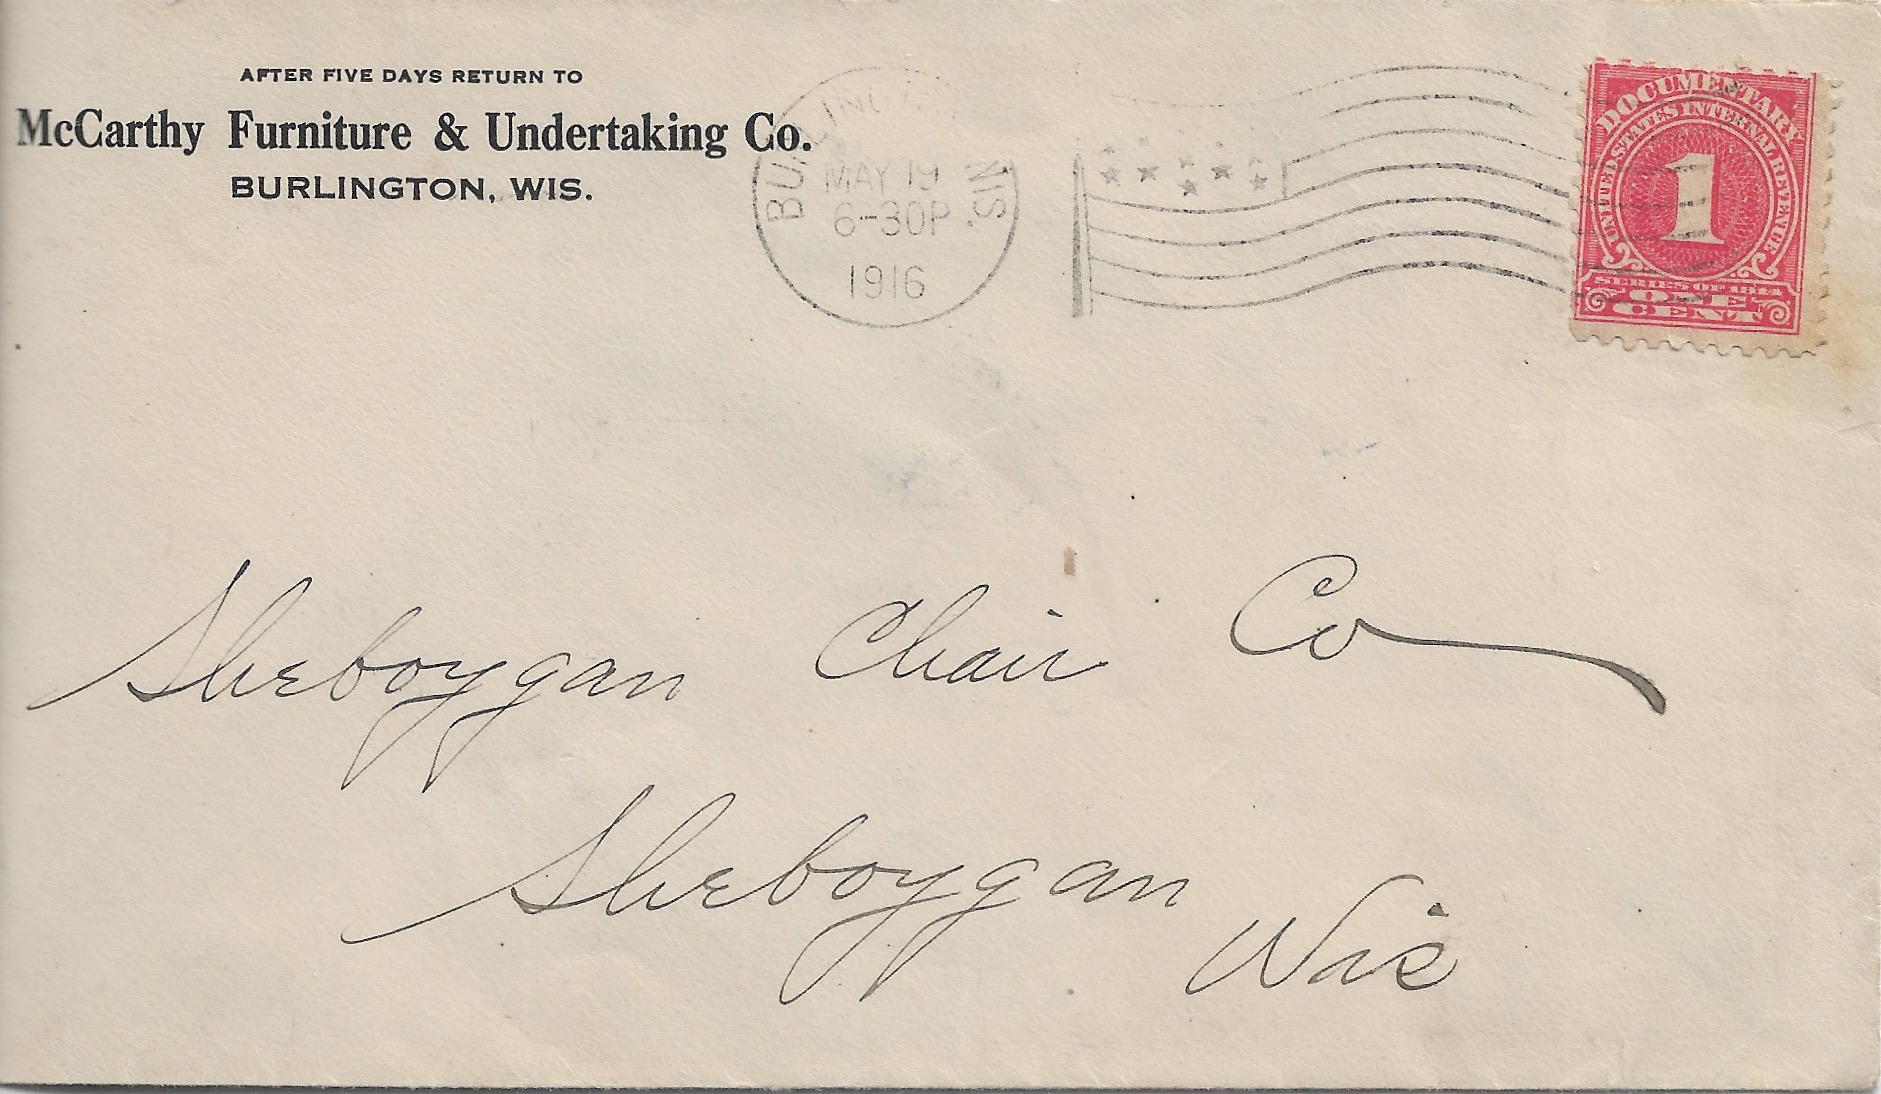 AFTER FIVE DAYS RETURN TO
McCarthy Furniture & Undertaking Co.
BURLINGTON, WIS.
MAY 19
6-30P
1916
DOCUMENTARY
UNITED STATES INTERNAL REVENUE
1
SERIES OF 1914
ONE
CENT
Sheboygan Chair Co
Sheboygan
Wis